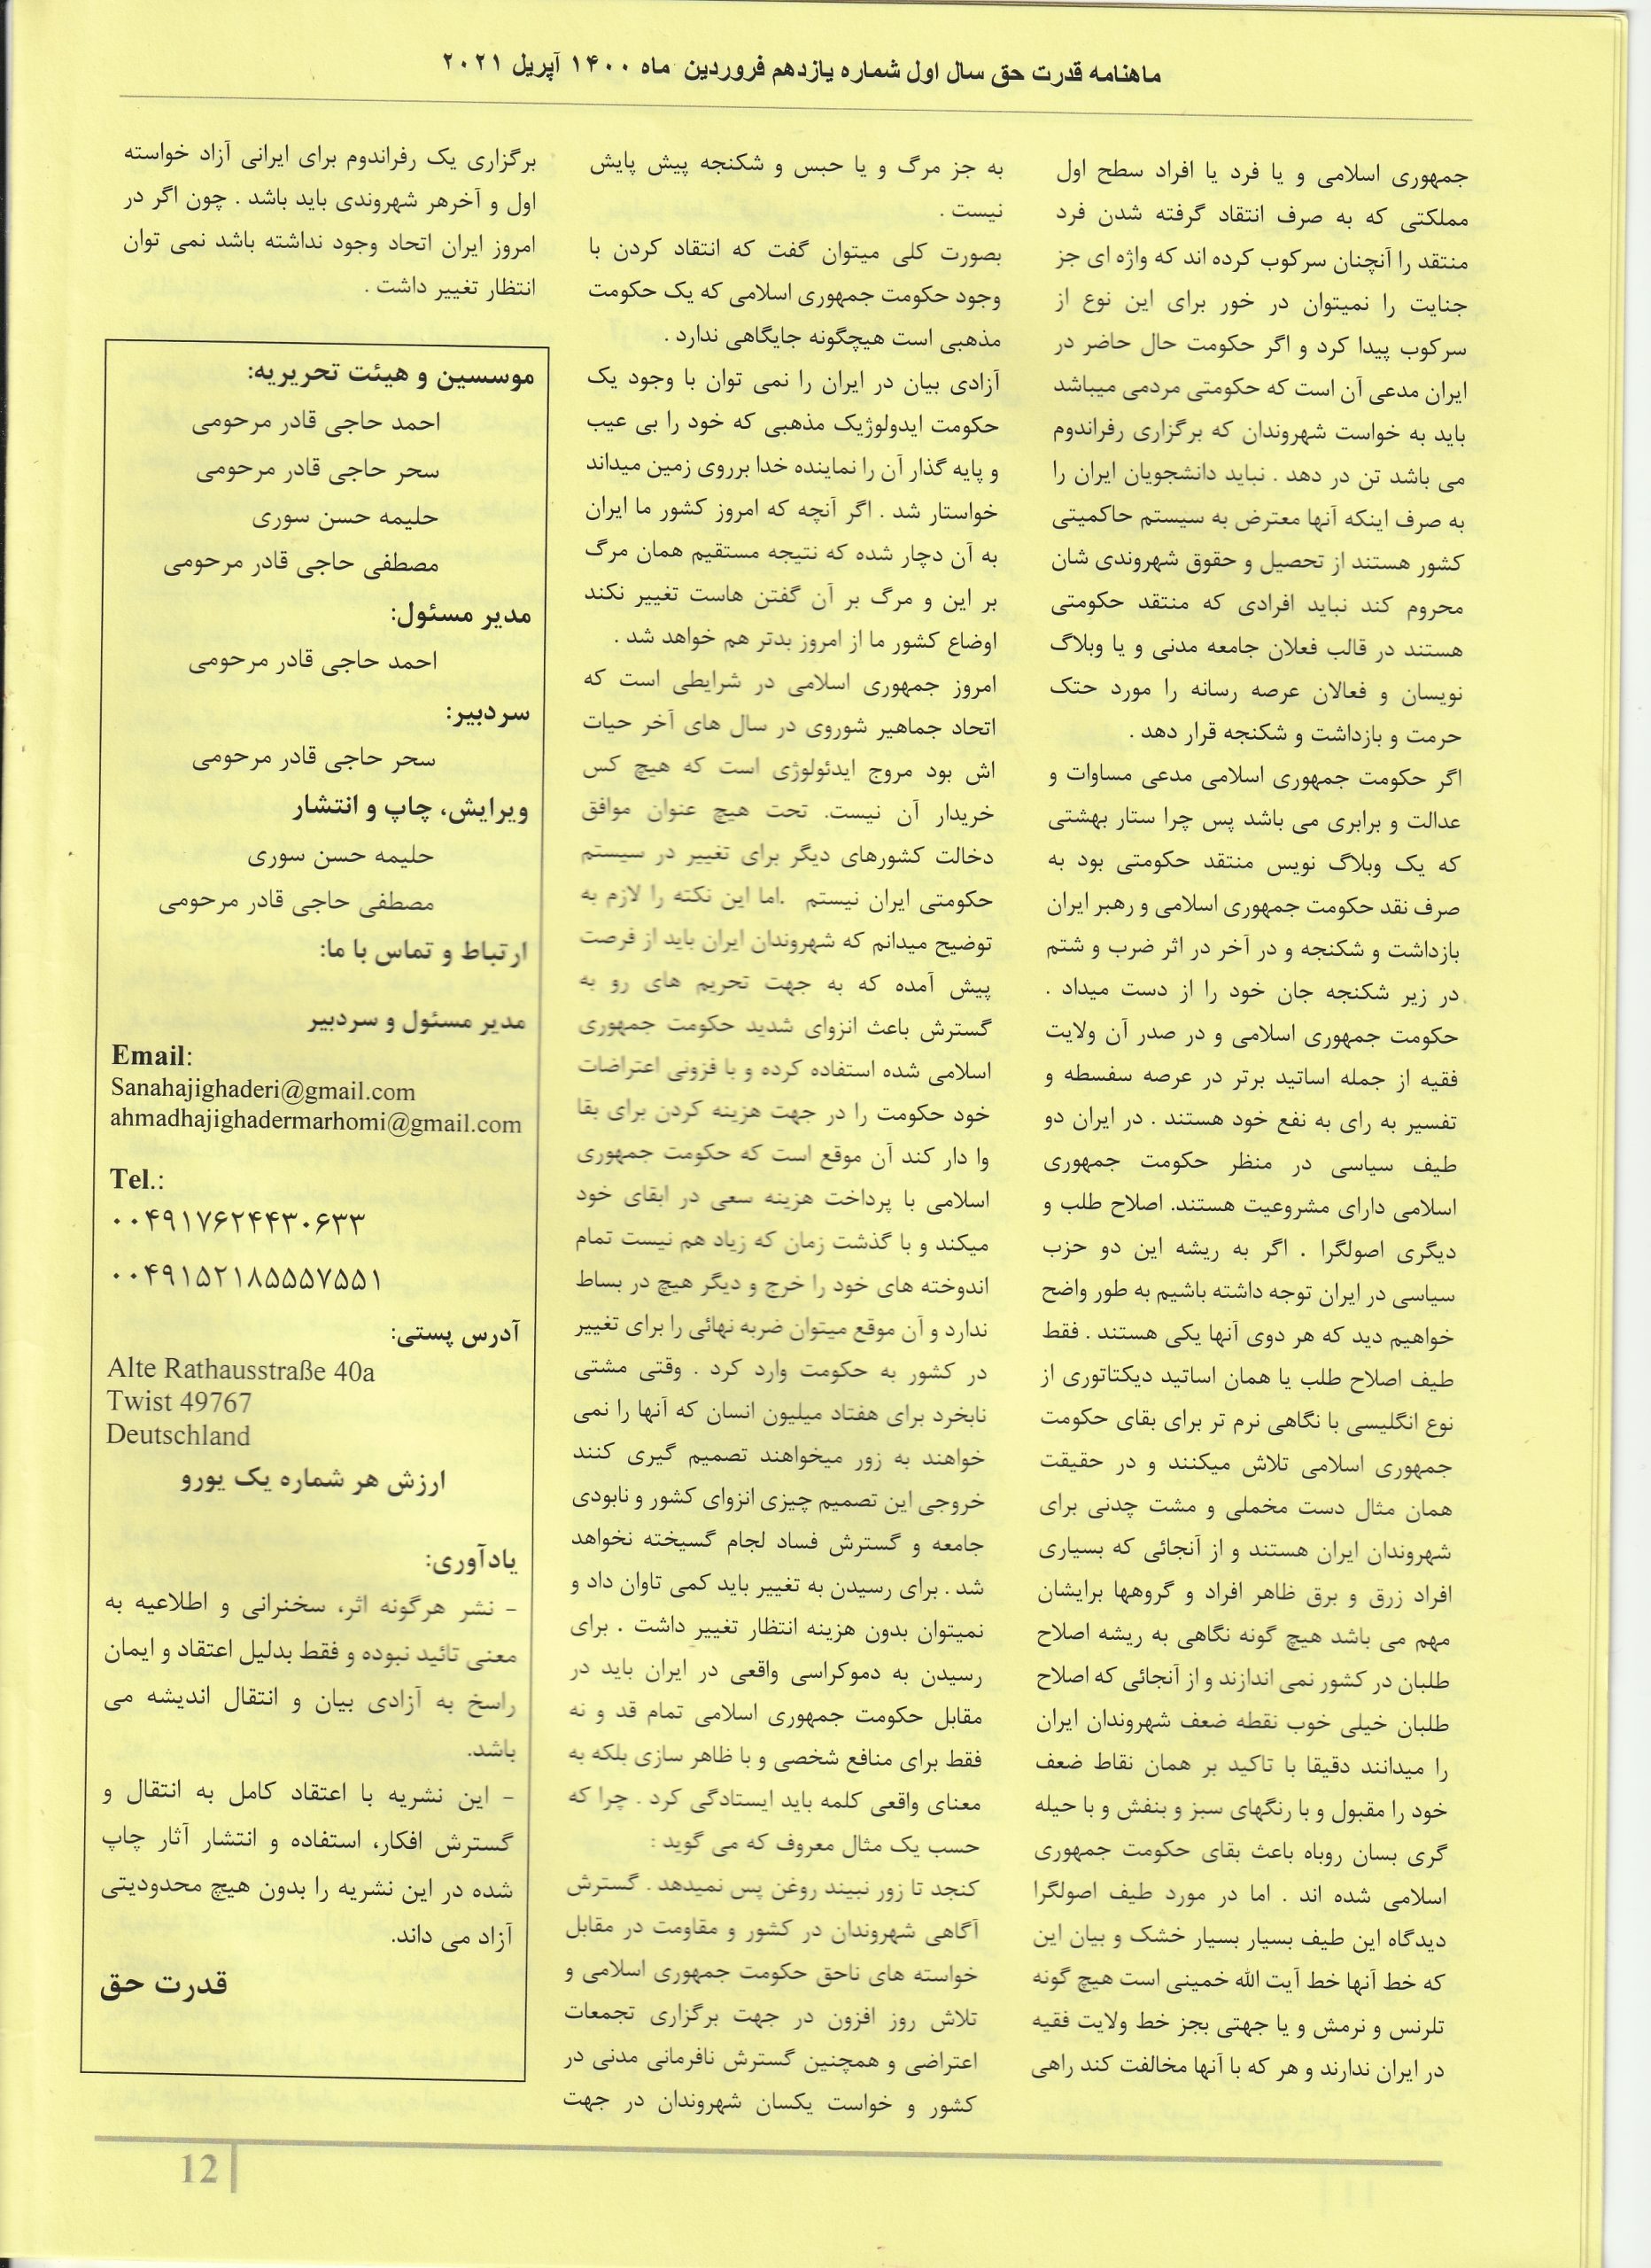 ماهنامه قدرت حق سال اول شماره یازدهم فروردین ماه ۱۴۰۰ آپریل ۲۰۲۱
جمهوری اسلامی و یا فرد یا افراد سطح اول
مملکتی که به صرف انتقاد گرفته شدن فرد
منتقد را آنچنان سرکوب کرده اند که واژه ای جز
جنایت را نمیتوان در خور برای این نوع از
سرکوب پیدا کرد و اگر حکومت حال حاضر در
ایران مدعی آن است که حکومتی مردمی میباشد
باید به خواست شهروندان که برگزاری رفراندوم
می باشد تن در دهد . نباید دانشجویان ایران را
به صرف اینکه آنها معترض به سیستم حاکمیتی
کشور هستند از تحصیل و حقوق شهروندی شان
محروم کند نباید افرادی که منتقد حکومتی
هستند در قالب فعلان جامعه مدنی و یا وبلاگ
نویسان و فعالان عرصه رسانه را مورد حتک
حرمت و بازداشت و شکنجه قرار دهد .
اگر حکومت جمهوری اسلامی مدعی مساوات و
عدالت و برابری می باشد پس چرا ستار بهشتی
که یک وبلاگ نویس منتقد حکومتی بود به
صرف نقد حکومت جمهوری اسلامی و رهبر ایران
بازداشت و شکنجه و در آخر در اثر ضرب و شتم
در زیر شکنجه جان خود را از دست میداد .
حکومت جمهوری اسلامی و در صدر آن ولایت
فقیه از جمله اساتید برتر در عرصه سفسطه و
تفسیر به رای به نفع خود هستند . در ایران دو
طیف سیاسی در منظر حکومت جمهوری
اسلامی دارای مشروعیت هستند. اصلاح طلب و
دیگری اصولگرا . اگر به ریشه این دو حزب
سیاسی در ایران توجه داشته باشیم به طور واضح
خواهیم دید که هر دوی آنها یکی هستند . فقط
طیف اصلاح طلب یا همان اساتید دیکتاتوری از
نوع انگلیسی با نگاهی نرم تر برای بقای حکومت
جمهوری اسلامی تلاش میکنند و در حقیقت
همان مثال دست مخملی و مشت چدنی برای
شهروندان ایران هستند و از آنجائی که بسیاری
افراد زرق و برق ظاهر افراد و گروهها برایشان
مهم می باشد هیچ گونه نگاهی به ریشه اصلاح
طلبان در کشور نمی اندازند و از آنجائی که اصلاح
طلبان خیلی خوب نقطه ضعف شهروندان ایران
را میدانند دقیقا با تاکید بر همان نقاط ضعف
خود را مقبول و با رنگهای سبز و بنفش و با حیله
گری بسان روباه باعث بقای حکومت جمهوری
اسلامی شده اند . اما در مورد طیف اصولگرا
دیدگاه این طیف بسیار بسیار خشک و بیان این
که خط آنها خط آیت الله خمینی است هیچ گونه
تلرنس و نرمش و یا جهتی بجز خط ولایت فقیه
در ایران ندارند و هر که با آنها مخالفت کند راهی
به جز مرگ و یا حبس و شکنجه پیش پایش
نیست .
بصورت کلی میتوان گفت که انتقاد کردن با
وجود حکومت جمهوری اسلامی که یک حکومت
مذهبی است هیچگونه جایگاهی ندارد .
آزادی بیان در ایران را نمی توان با وجود یک
حکومت ایدولوژیک مذهبی که خود را بی عیب
و پایه گذار آن را نماینده خدا برروی زمین میداند
خواستار شد . اگر آنچه که امروز کشور ما ایران
به آن دچار شده که نتیجه مستقیم همان مرگ
بر این و مرگ بر آن گفتن هاست تغییر نکند
اوضاع کشور ما از امروز بدتر هم خواهد شد .
امروز جمهوری اسلامی در شرایطی است که
اتحاد جماهیر شوروی در سال های آخر حیات
اش بود مروج ایدئولوژی است که هیچ کس
خریدار آن نیست. تحت هیچ عنوان موافق
دخالت کشورهای دیگر برای تغییر در سیستم
حکومتی ایران نیستم .اما این نکته را لازم به
توضیح میدانم که شهروندان ایران باید از فرصت
پیش آمده که به جهت تحریم های رو به
گسترش باعث انزوای شدید حکومت جمهوری
اسلامی شده استفاده کرده و با فزونی اعتراضات
خود حکومت را در جهت هزینه کردن برای بقا
وا دار کند آن موقع است که حکومت جمهوری
اسلامی با پرداخت هزینه سعی در ابقای خود
میکند و با گذشت زمان که زیاد هم نیست تمام
اندوخته های خود را خرج و دیگر هیچ در بساط
ندارد و آن موقع میتوان ضربه نهائی را برای تغییر
در کشور به حکومت وارد کرد . وقتی مشتی
نابخرد برای هفتاد میلیون انسان که آنها را نمی
خواهند به زور میخواهند تصمیم گیری کنند
خروجی این تصمیم چیزی انزوای کشور و نابودی
جامعه و گسترش فساد لجام گسیخته نخواهد
شد . برای رسیدن به تغییر باید کمی تاوان داد و
نمیتوان بدون هزینه انتظار تغییر داشت . برای
رسیدن به دموکراسی واقعی در ایران باید در
مقابل حکومت جمهوری اسلامی تمام قد و نه
فقط برای منافع شخصی و با ظاهر سازی بلکه به
معنای واقعی کلمه باید ایستادگی کرد . چرا که
حسب یک مثال معروف که می گوید :
کنجد تا زور نبیند روغن پس نمیدهد . گسترش
آگاهی شهروندان در کشور و مقاومت در مقابل
خواسته های ناحق حکومت جمهوری اسلامی و
تلاش روز افزون در جهت برگزاری تجمعات
اعتراضی و همچنین گسترش نافرمانی مدنی در
کشور و خواست یکسان شهروندان در جهت
برگزاری یک رفراندوم برای ایرانی آزاد خواسته
اول و آخرهر شهروندی باید باشد . چون اگر در
امروز ایران اتحاد وجود نداشته باشد نمی توان
انتظار تغییر داشت .
موسسین و هیئت تحریریه:
احمد حاجی قادر مرحومی
سحر حاجی قادر مرحومی
حلیمه حسن سوری
مصطفی حاجی قادر مرحومی
مدیر مسئول:
احمد حاجی قادر مرحومی
سردبیر:
سحر حاجی قادر مرحومی
ویرایش، چاپ و انتشار
حلیمه حسن سوری
مصطفی حاجی قادر مرحومی
ارتباط و تماس با ما:
مدیر مسئول و سردبیر
Email:
Sanahajighaderi@gmail.com
ahmadhajighadermarhomi@gmail.com
Tel.:
۰۰۴۹۱۷۶۲۴۴۳۰۶۳۳
۰۰۴۹۱۵۲۱۸۵۵۵۷۵۵۱
آدرس پستی:
Alte Rathausstraße 40a
Twist 49767
Deutschland
ارزش هر شماره یک یورو
یادآوری:
- نشر هرگونه اثر، سخنرانی و اطلاعیه به
معنی تائید نبوده و فقط بدلیل اعتقاد و ایمان
راسخ به آزادی بیان و انتقال اندیشه می
باشد.
- این نشریه با اعتقاد کامل به انتقال و
گسترش افکار، استفاده و انتشار آثار چاپ
شده در این نشریه را بدون هیچ محدودیتی
آزاد می داند.
قدرت حق
12